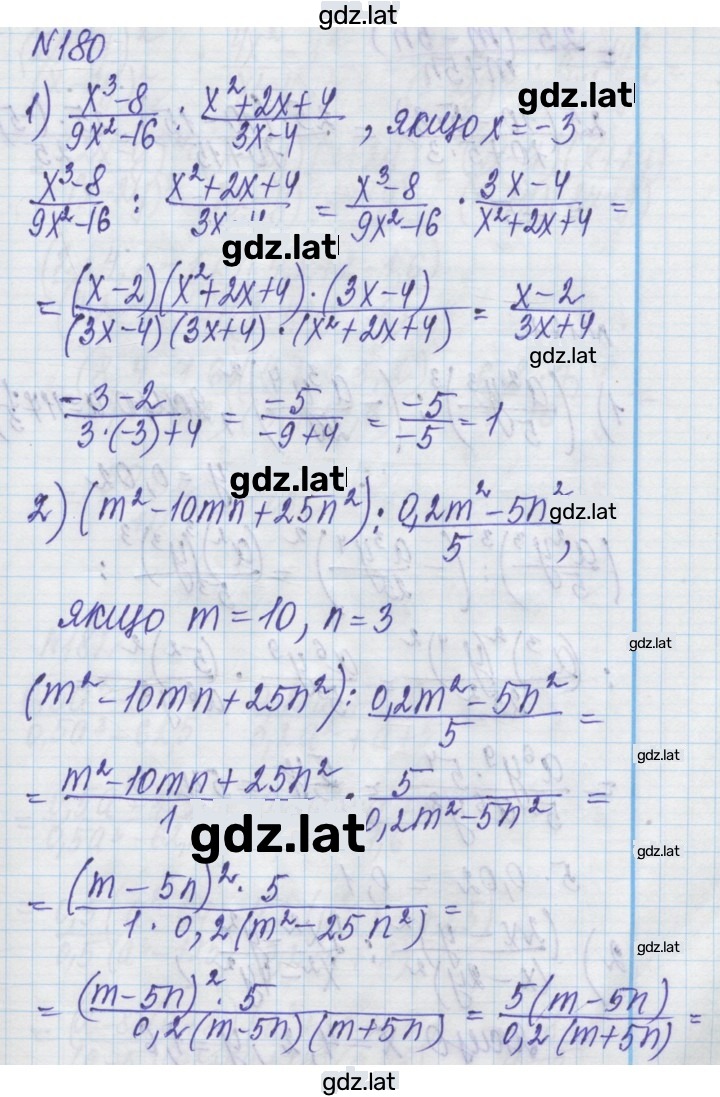 gdz.lat
№180
gdz.lat
1) (x³-8)/(9x²-16) : (x²+2x+4)/(3x-4), якщо x=-3
(x³-8)/(9x²-16) : (x²+2x+4)/(3x = (x³-8)/(9x²-16) · (3x-4)/(x²+2x+4) =
gdz.lat
= ((x-2)(x²+2x+4)·(3x-4))/((3x-4)(3x+4)·(x²+2x+4)) = (x-2)/(3x+4)
gdz.lat
(-3-2)/(3·(-3)+4) = (-5)/(-9+4) = (-5)/(-5) = 1
gdz.lat
2) (m²-10mn+25n²) : (0,2m²-5n²)/5,
gdz.lat
якщо m=10, n=3
gdz.lat
(m²-10mn+25n²) : (0,2m²-5n²)/5 =
gdz.lat
= (m²-10mn+25n²)/1 · 5/(0,2m²-5n²) =
gdz.lat
gdz.lat
= ((m-5n)²·5)/(1·0,2(m²-25n²)) =
gdz.lat
= ((m-5n)²·5)/(0,2(m-5n)(m+5n)) = (5(m-5n))/(0,2(m+5n)) =
gdz.lat